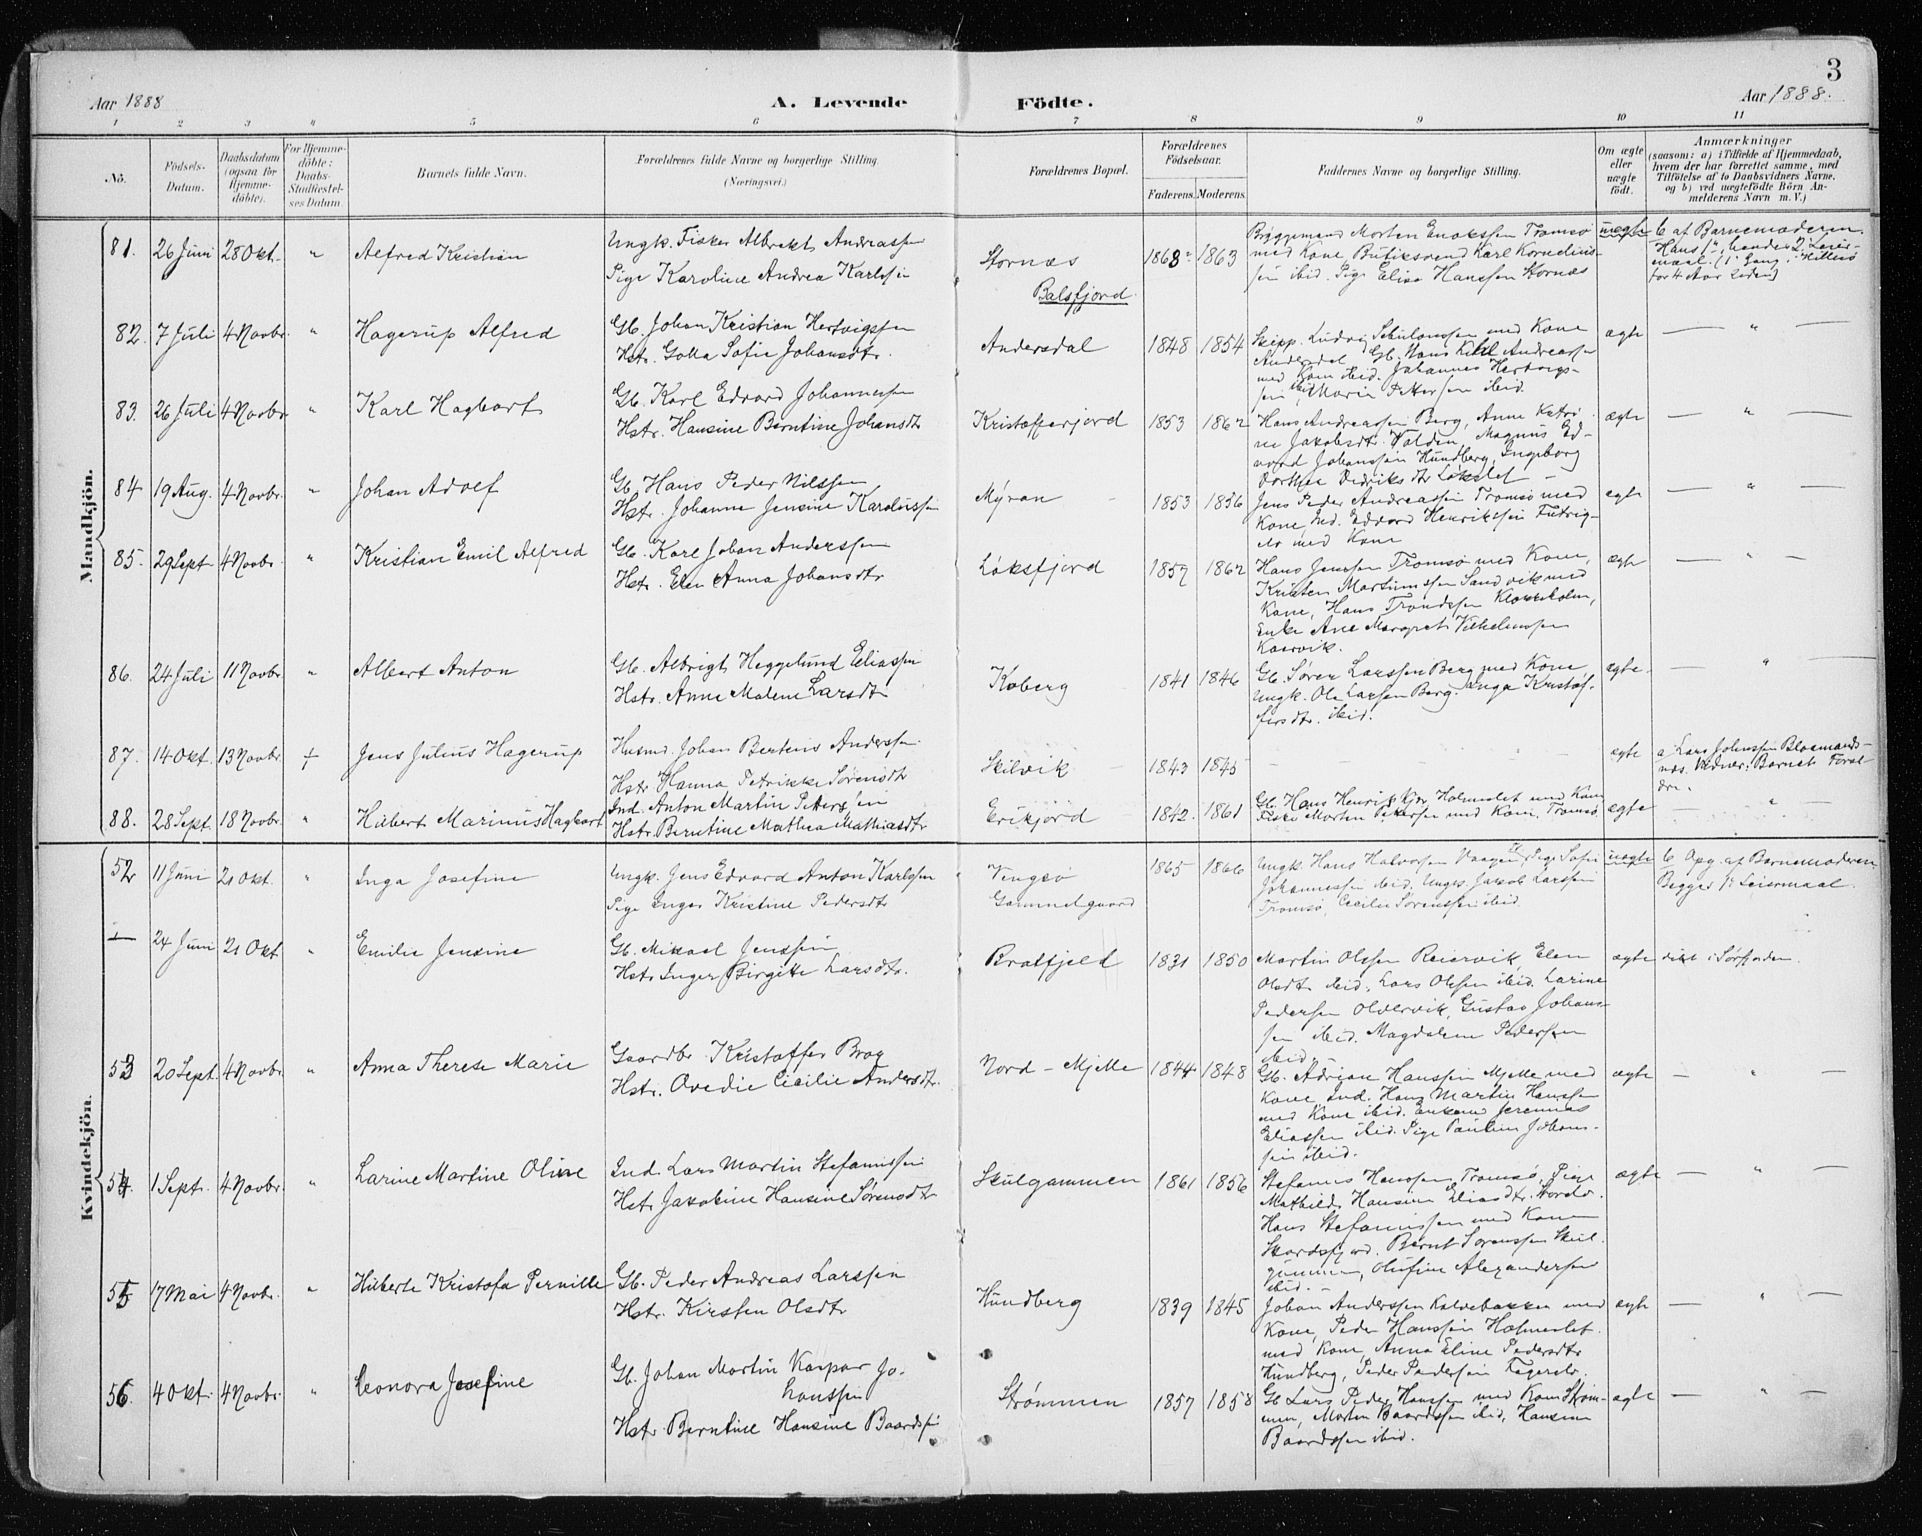 3
Aar 1888
A. Levende Födte.
Aar 1888.
1 2 3 4 5 6 7 8 9 10 11
No.
Födsels-
Datum.
Daabsdatum
(ogsaa for
Hjemme-
döbte).
For Hjemme-
döbte:
Daabs-
Stadfæstel-
ses Datum.
Barnets fulde Navn.
Forældrenes fulde Navne og borgerlige Stilling.
(Næringsvei.)
Forældrenes Bopæl.
Forældrenes
Födselsaar.
Faderens. Moderens.
Faddernes Navne og borgerlige Stilling.
Om ægte
eller
uægte
födt.
Anmærkninger
(saasom: a) i Tilfælde af Hjemmedaab,
hvem der har forrettet samme, med
Tilföielse af to Daabsvidners Navne.
og b) ved uægtefödte Börn An-
melderens Navn m. V.)
Mandkjön.
81. 26 Juni 28 Okt. " Alfred Kristian
Ungk. Fisker Albrekt Andreassen
Pige Karoline Andrea Karlsen
Stornæs
Balsfjord
1863 1863
Bryggemand Morten Enokssen Tromsø
med Kone, Butiksvend Karl Kornelius-
sen ibid. Pige Elisa Hanssen Stornæs
uægte
b af Barnemoderen.
for 4 Aar siden)
82. 7 Juli 4 Novbr. " Hagerup Alfred
Gb. Johan Kristian Hertvigssen
Hstr. Golla Sofie Johansdtr.
Andersdal
1848 1854
Skipp. Ludvig med Kone
Andersdal Gb. Hans Andreassen
med Kone ibid. Johannes Hertvigs-
sen ibid Marie Pettersen ibid.
ægte
— " —
83. 26 Juli 4 Novbr. " Karl Hagbart
Gb. Karl Edvard Johannessen
Hstr. Hansine Berntine Johansdtr
Kristofferjord
1853 1862
Hans Andreassen Berg, Anne Katri-
ne Jakobsdtr. Volden, Magnus Ed-
vard Johanssen Hundberg, Ingeborg
Dorthea Didriksdtr Lökslet
ægte
— " —
84 19 Aug. 4 Novbr. " Johan Adolf
Gb. Hans Peder Nilssen
Hstr. Johanne Jensine Karolussen
Myran
1853 1856
Jens Peder Andreassen Tromsø med
Kone, Ind. Edvard Henrikssen Futrig-
elv med Kone
ægte
— " —
85. 29 Sept 4 Novbr. " Kristian Emil Alfred
Gb. Karl Johan Anderssen
Hstr. Elen Anna Johansdtr
Løksfjord
1857 1862
Hans Jenssen Tromsø med Kone,
Kristen Martinussen Sandvik med
Kone, Hans Trondssen
Enke Ane Margret Vilhelmssen
ægte
— " —
86. 24 Juli 11 Novbr. " Albert Anton
Gb. Albrigt Heggelund Eliassen
Hstr. Anne Malene Larsdtr
Koberg
1841 1846
Gb. Søren Larssen Berg med Kone
Ungk. Ole Larssen Berg. Inga Kristof-
fersdtr. ibid.
ægte.
— " —
87. 14 Okt. 13 Novbr + Jens Julius Hagerup
Husmd. Johan Bertens Anderssen
Hstr Hanna Petrikke Sørensdtr
Skilvik
1843 1845
ægte
a, Lars Johnssen Blaamands-
næs. Vidner: Barnets Foræl-
dre.
88. 28 Sept. 18 Novbr. " Hilbert Marinius Hagbart
Ind. Anton Martin Petterssen
Hstr Berntine Mathea Mathiasdtr
Erikjord
1842. 1861
Gb. Hans Henrik Kjær Holmeslet med Kone
Fisker Morten Pedersen med Kone, Tromsø
ægte
— " —
Kvindekjön.
52 11 Juni 21 Okt. " Inga Josefine
Ungk. Jens Edvard Anton Karlssen
Pige Inger Kristine Pedersdtr
Vengsø
Gammelgaard
1865 1866
Ungk. Hans Halvorsen Vaagen, Pige Sofie
Johannessen ibid. Ungk. Jakob Larssen
Tromsø, Cecilie Sørenssen ibid.
uægte
b Opg. af Barnemoderen
Begges 1' Leiermaal.
— 24 Juni 21 Okt " Emilie Jensine
Gb. Mikael Jenssen
Hstr Inger Birgitte Larsdtr.
Bratfjeld
1831 1850
Martin Olssen Reiervik, Elen
Olsdtr ibid. Lars Olssen ibid. Larine
Pedersen Oldervik, Gustav Johans-
sen ibid. Magdalene Pederssen
ibid.
ægte
døbt i Sørfjorden.
53 20 Sept. 4 Novbr. " Anna Therese Marie
Gaardbr. Kristoffer Brox
Hstr. Ovedie Cicilie Andersdtr.
Nord-Mjelle
1844 1848
Gb. Adrian Hanssen Mjelle med
Kone, Ind. Hans Martin Hanssen
med Kone ibid. Enkem Jeremias
Eliassen ibid. Pige Pauline Johans-
sen ibid.
ægte
— " —
54. 1 Sept. 4 Novbr. " Larine Martine Oline
Ind. Lars Martin Stefanussen
Hstr Jakobine Hansine Sørensdtr
Skulgammen
1861 1856
Stefanus Hanssen Tromsø, Pige
Mathilde Hansine Eliasdtr. Storelv.
Hans Stefanussen med Kone
Skardsfjord. Bernt Sørenssen Skul-
gammen, Olufine Alexandersen
ibid.
ægte
— " —
55 17 Mai 4 Novbr. " Hilberte Kristofa Pernille
Gb. Peder Andreas Larssen
Hstr. Kirsten Olsdtr
Hundberg
1839 1845
Johan Anderssen Kalvebakken med
Kone, Peder Hanssen Holmeslet
med Kone, Anna Eline Pedersdtr
Hundberg, Peder Pederssen Fagerelv.
ægte
— " —
56. 4 Okt. 4 Novbr. " Leonora Josefine
Gb. Johan Martin Kaspar Jo-
hanssen
Hstr Berntine Hansine Baardsen
Strømmen
1857 1858
Gb Lars Peder Hanssen med Kone Strøm-
men, Morten Baardssen ibid, Hansine
Baardssen ibid.
ægte
— " —